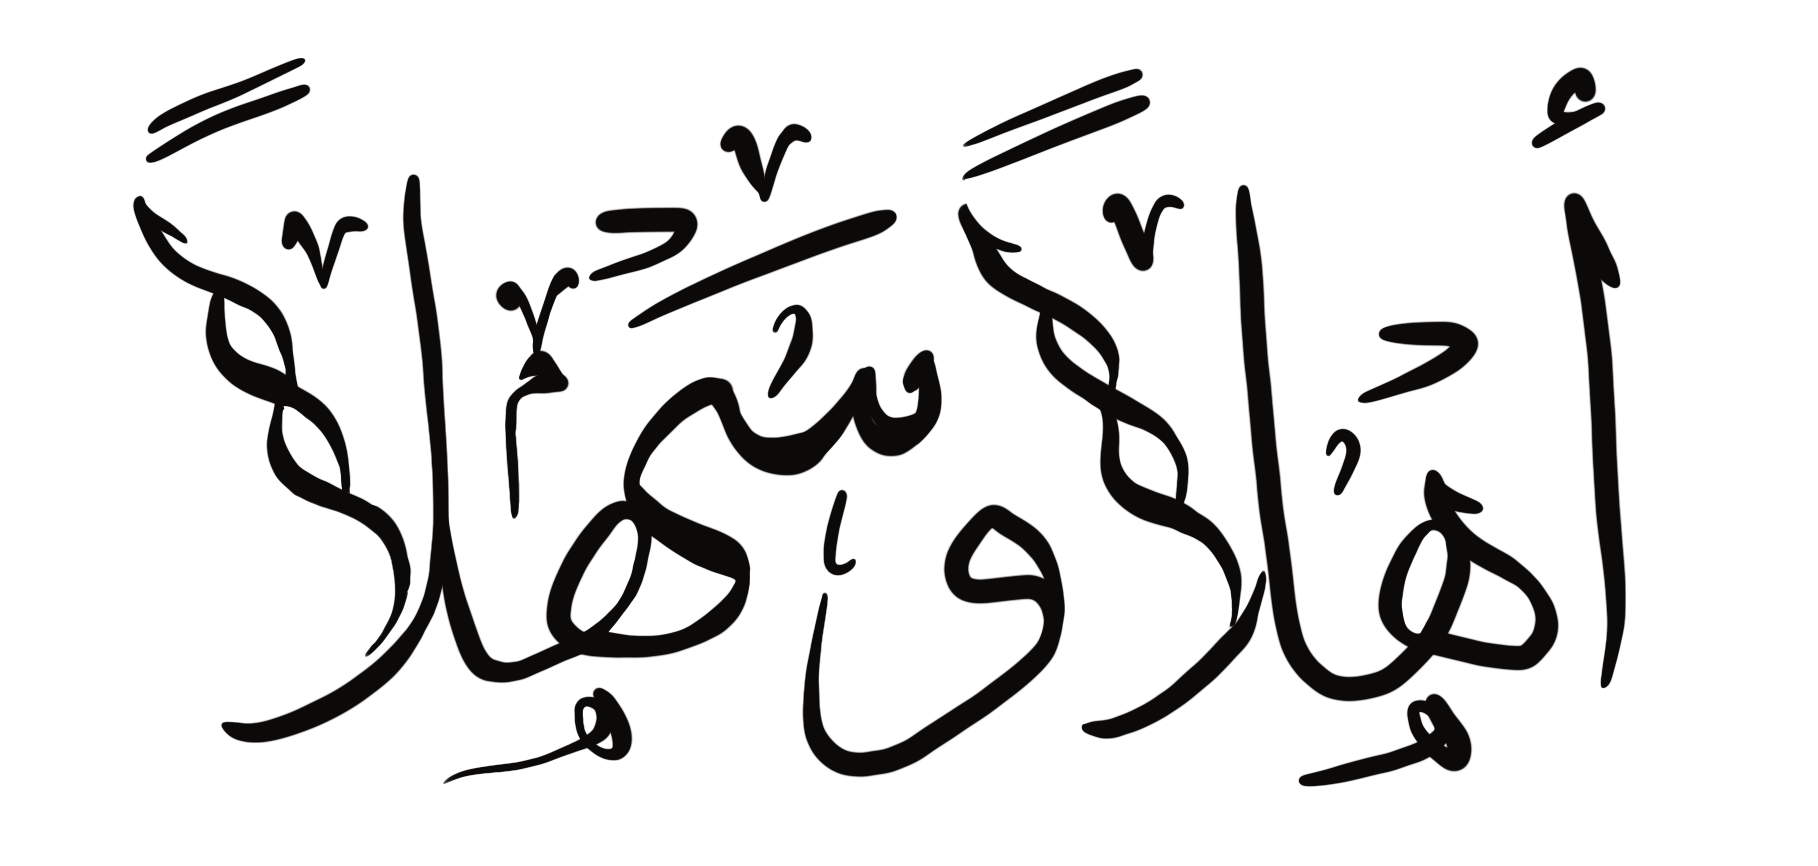 أهلاً وسهلاً